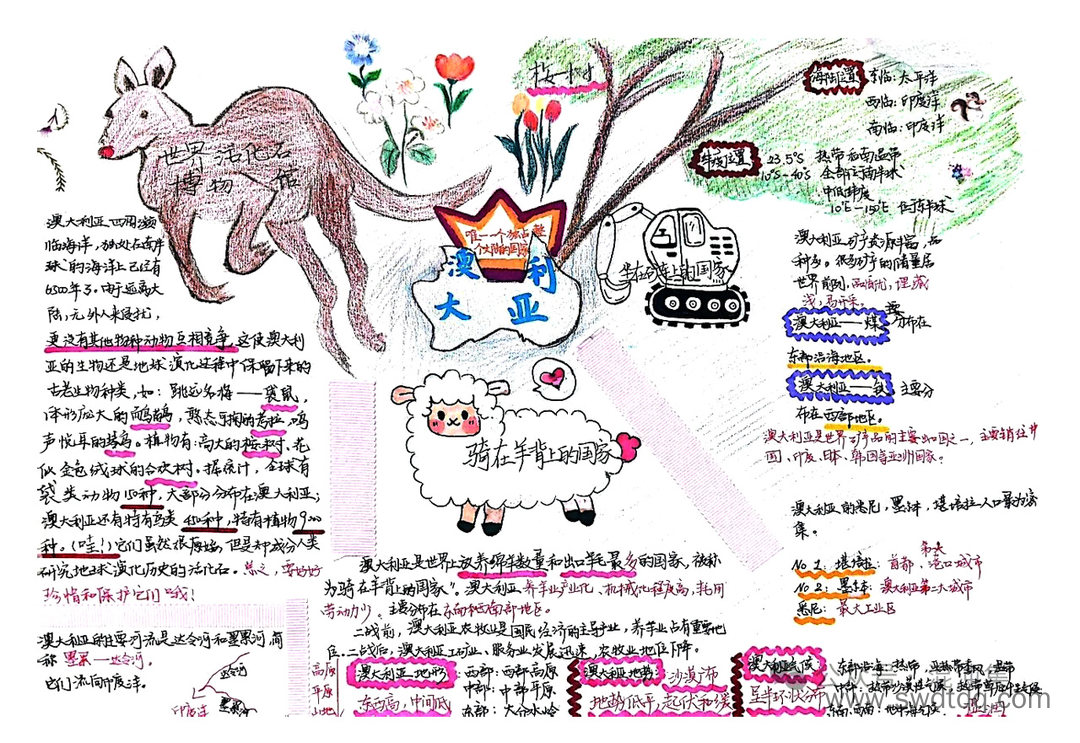 世界活化石
博物馆
澳大利亚四周频
临海洋，独处在南半
球的海洋上已经有
6500年了。由于远离大
陆，无外人来侵扰，
更没有其他物种动物互相竞争，这使澳大利
亚的生物还是地球演化过程中保留下来的
古老生物种类，如：跳远名将——袋鼠，
体形庞大的鸸鹋，憨态可掬的考拉，鸣
声悦耳的琴鸟。植物有：高大的桉树、花
似金色绒球的合欢树。据统计，全球有
袋类动物150种，大部分分布在澳大利亚；
澳大利亚还有特有鸟类450种，特有植物9000
种。（哇！）它们虽然很原始，但是却成为人类
研究地球演化历史的活化石。总之，要好好
珍惜和保护它们哦！
澳大利亚的主要河流是达令河和墨累河，简
称墨累—达令河。
它们流向印度洋。
达令河
墨累河
印度洋
唯一一个独占整
个大陆的国家
澳大利亚
桉树
坐在矿车上的国家
骑在羊背上的国家
澳大利亚是世界上放养绵羊数量和出口羊毛最多的国家，被称
为"骑在羊背上的国家"。澳大利亚养羊业产业化、机械化程度高，耗用
劳动力少，主要分布在东南和西南部地区。
二战前，澳大利亚农牧业是国民经济的主导业，养羊业占有重要地
位。二战后，澳大利亚工矿业、服务业发展迅速，农牧业地位下降。
高原
平原
山地
澳大利亚地形
东西高，中间低
西部：西部高原
中部：中部平原
东部：大分水岭
澳大利亚地势
沙漠广布
地势低平，起伏和缓
澳大利亚气候
呈半环状分布
海陆位置
东临：太平洋
西临：印度洋
南临：印度洋
纬度位置
23.5°S 热带和南温带
10°S-40°S 全部在南半球
中低纬度
澳大利亚矿产资源丰富，品
种多。很多矿产的储量居
世界前列，品质优，埋藏
浅，易开采。
澳大利亚——煤 主要分布在
东部沿海地区。
澳大利亚——铁 主要分
布在西部地区。
澳大利亚是世界矿产品的主要出口国之一，主要销往中
国、印度、日本、韩国等亚洲国家。
澳大利亚的悉尼，墨尔本，堪培拉人口最为密
集。
No 1：堪培拉：首都，港口城市
No 2：墨尔本：澳大利亚第二大城市
悉尼：最大工业区
www.swdtdq.com